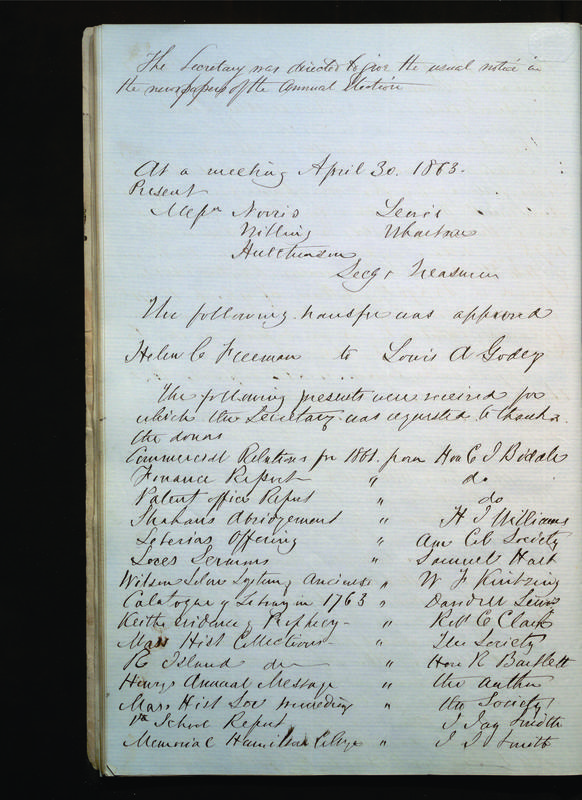 The Secretary was directed to give the usual notice in
the newspapers of the Annual Election
At a meeting April 30. 1863.
Present
Messrs Norris Lewis
Willing Wharton
Hutchinson
Secy & Treasurer
The following transfer was approved
Helen C Freeman to Louis A Godey
The following presents were received for
which the Secretary was requested to thank
the donors
Commercial Relations for 1861. from Hon C J Biddle
Finance Report " do
Patent office Report " do
Abridgement " H J Williams
Offering " Am Col Society
Sermons " Samuel Hart
Wilson " W F
Catalogue of Library in 1763 " Lewis
Keiths evidence of Prophecy " Robt C Clark
Mass Hist Collections " The Society
R Island do " Hon R Bartlett
Henrys Annual Message " the author
Mass Hist Soc " the Society
Pa School Report J Jay Smith
Memorial Hamilton College " J J Smith